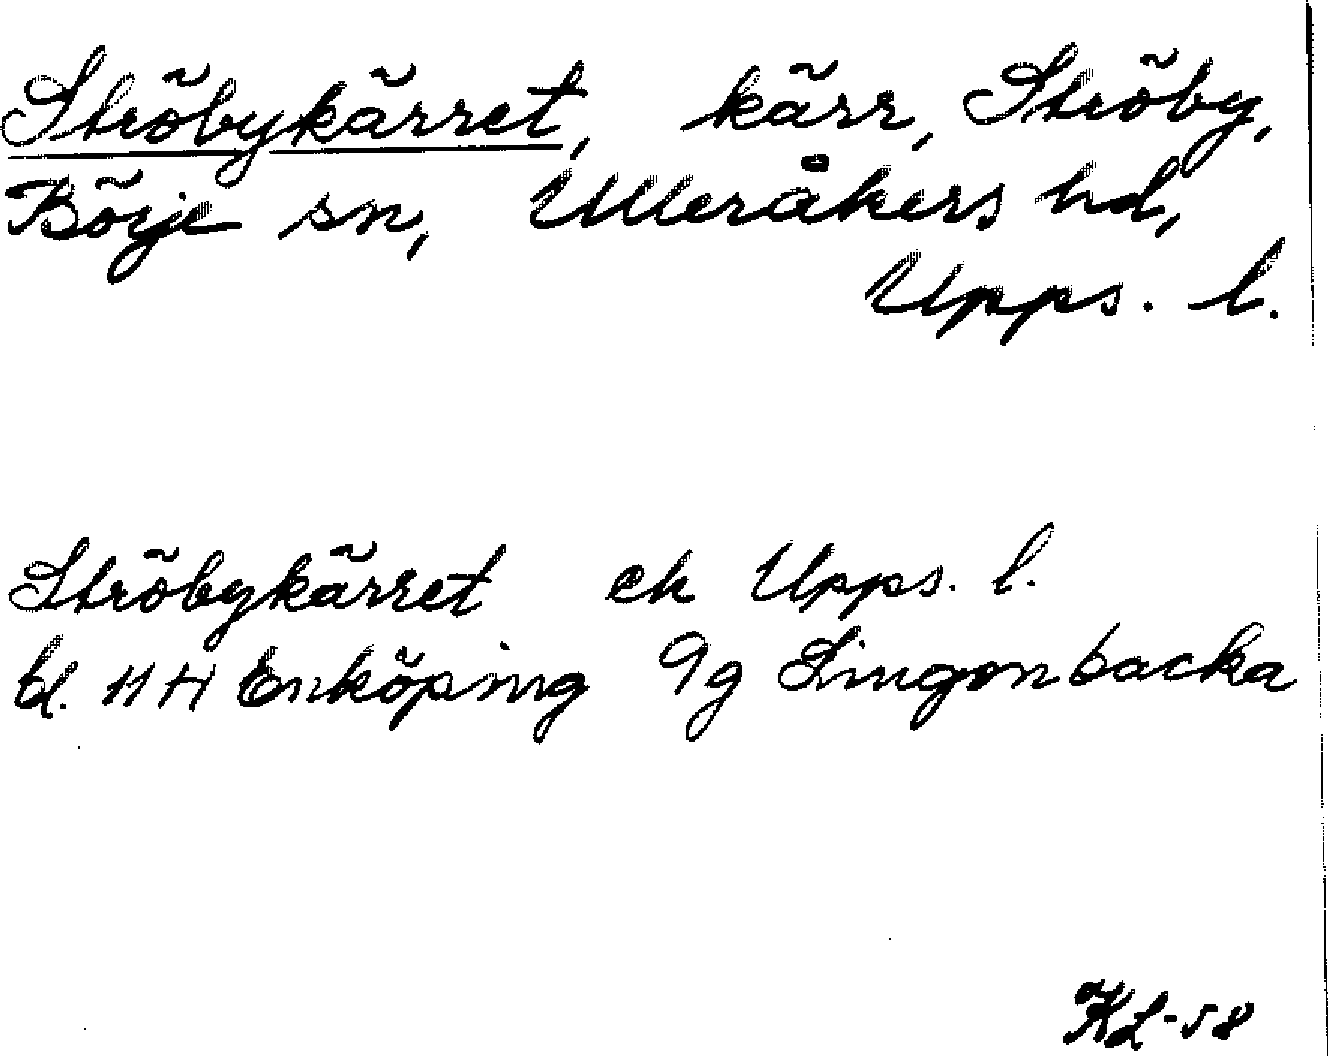 Ströbykärret, kärr, Ströby,
Börje sn, Ulleråkers hd,
Upps. l.
Ströbykärret ek Upps. l.
bl. 11 H Enköping 9g Lingonbacka
KL-58